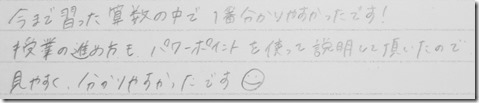 今まで習った算数の中で1番分かりやすかったです!
授業の進め方も、パワーポイントを使って説明して頂いたので
見やすく、分かりやすかったです☺